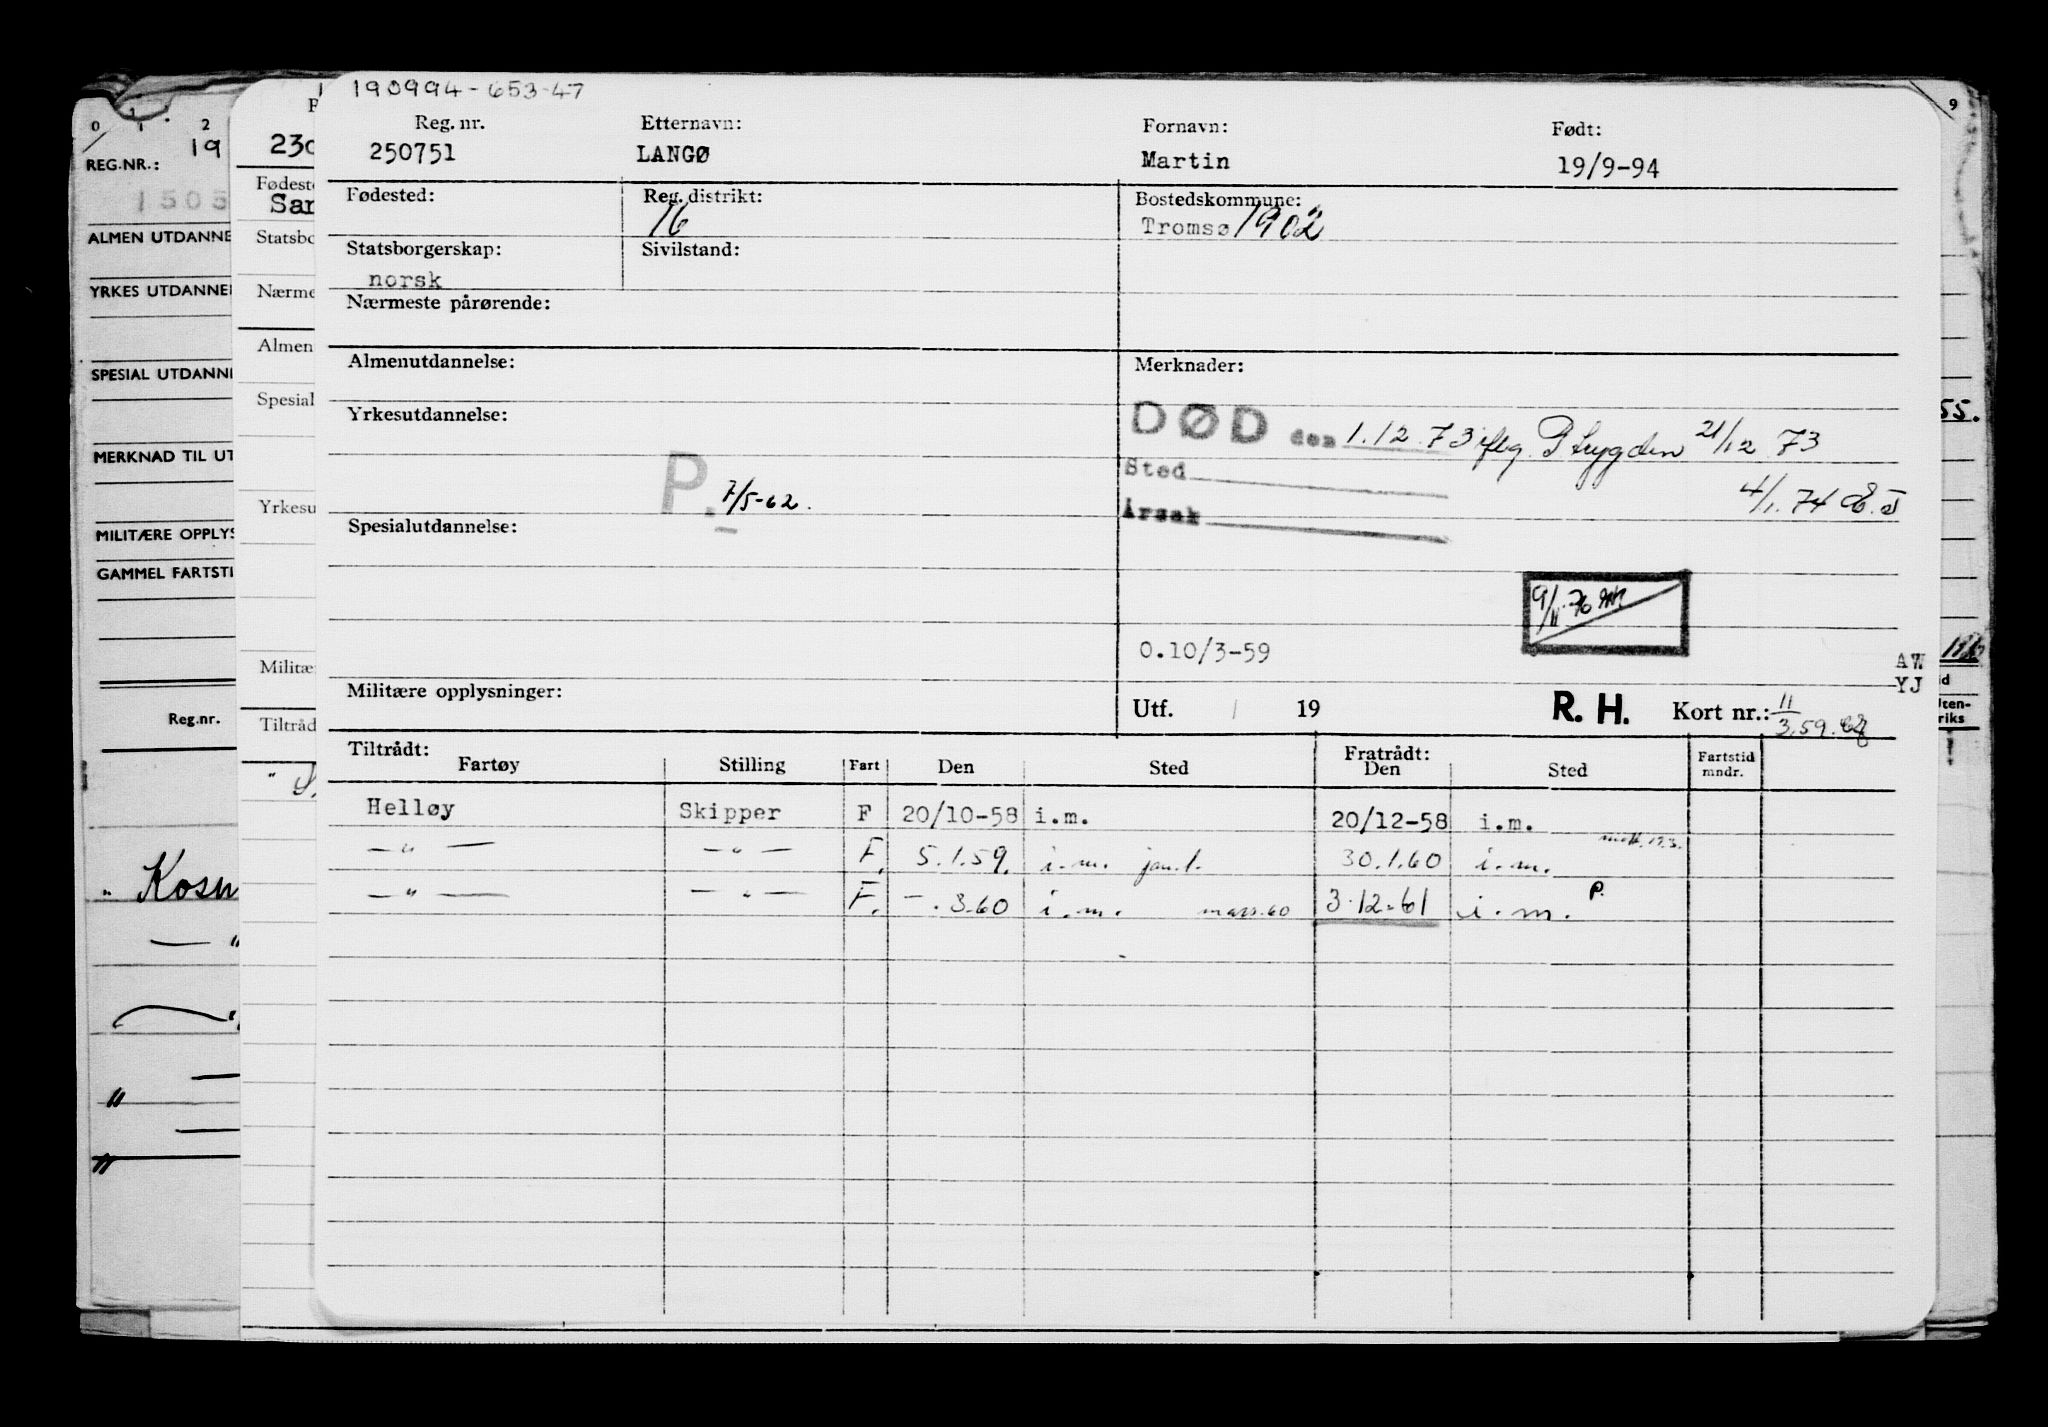 190994-653-47
Reg. nr. Etternavn: Fornavn: Født:
250751 LANGØ Martin 19/9-94
Fødested: Reg. distrikt: Bostedskommune:
16 Tromsø 1902
Statsborgerskap: Sivilstand:
norsk
Nærmeste pårørende:
Almenutdannelse: Merknader:
Yrkesutdannelse:
DØD den 1.12.73 iflg. P trygden 21/12 73
Sted
P. 7/5-62. 4/1.74
Årsak
Spesialutdannelse:
9/11-76
0.10/3-59
AW
YJ
Militære opplysninger: Utf. 19 R. H. Kort nr.: 11/3.59.
Tiltrådt: Fratrådt:
Fartøy Stilling Fart Den Sted Den Sted Fartstid mndr.
Helløy Skipper F 20/10-58 i.m. 20/12-58 i.m.
— " — — " — F. 5.1.59. i.m. jan.1. 30.1.60 i.m.
— " — — " — F. —.3.60 i.m. mars.60 3.12.61 i.m. P.
0 1 2
REG.NR.: 19
1505
ALMEN UTDANNE
YRKES UTDANNE
SPESIAL UTDANN
MERKNAD TIL UT
MILITÆRE OPPLYS
GAMMEL FARTSTI
Reg.nr.
" Kosm
230
Fødest
Sar
Statsbo
Nærme
Almen
Spesial
Yrkesu
Militæ
Tiltråd
9
55.
id
Uten-
riks